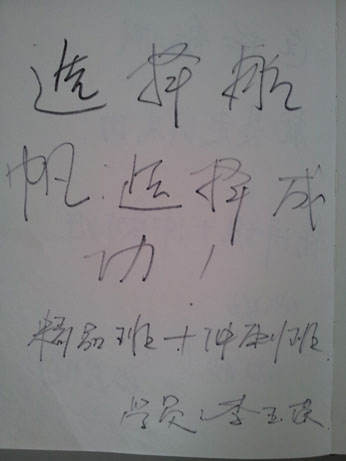 选择航
帆:选择成
功!
精品班+冲刺班
学员:李玉